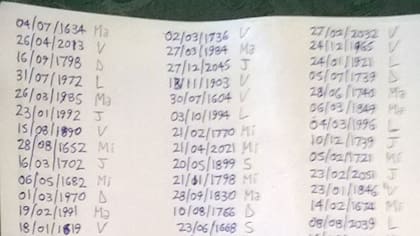 04/07/1634 Ma
26/04/2013 V
16/09/1798 D
31/07/1972 L
26/03/1985 Ma
23/01/1992 J
15/08/1890 V
28/08/1652 Mi
16/03/1702 J
06/05/1682 Mi
01/03/1970 D
19/02/1991 Ma
18/01/1619 V
02/03/1736 V
27/03/1984 Ma
27/12/2045 J
13/11/1903 V
30/07/1604 V
03/10/1994 L
21/02/1770 Mi
21/04/2021 Mi
20/05/1899 S
21/11/1798 Mi
28/09/1830 Ma
10/08/1766 D
23/06/1668 S
27/02/2032 V
24/12/1965 V
24/01/1921 L
05/07/1739 D
28/06/1740 Ma
06/03/1849 Ma
04/03/1996 L
10/12/1739 J
05/02/1721 Mi
23/02/2051 J
23/01/1846 V
14/02/1674 Mi
08/08/2039 L